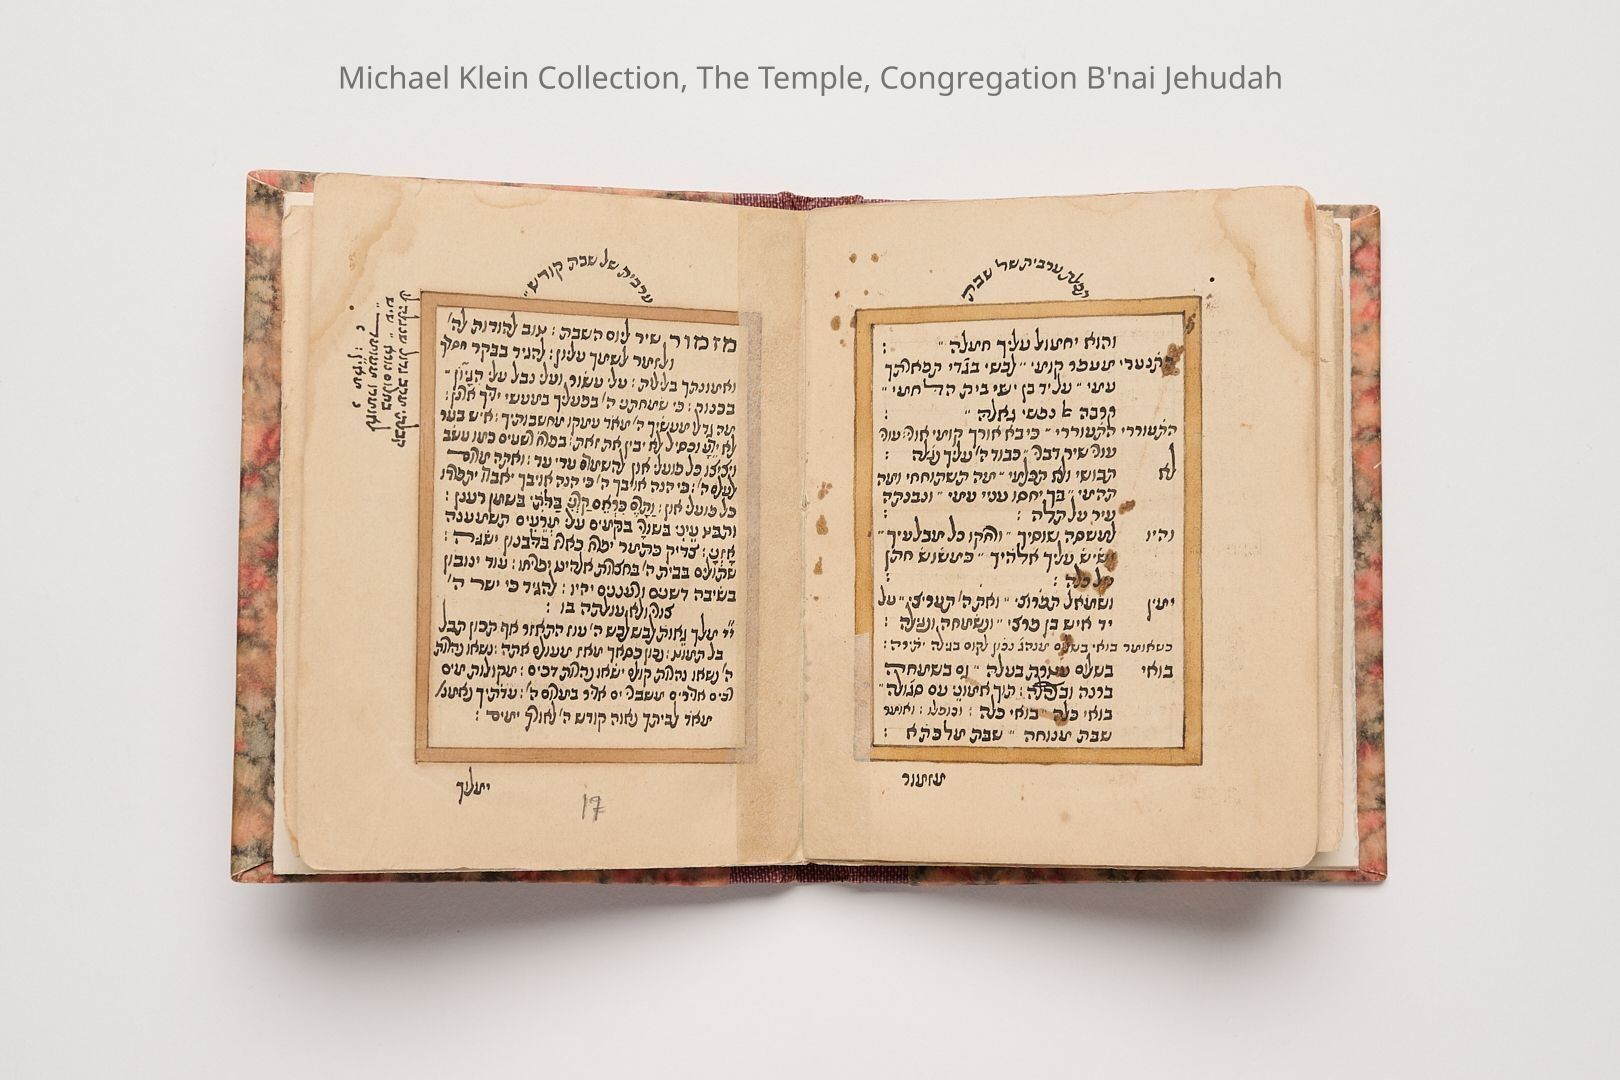 Michael Klein Collection, The Temple, Congregation B'nai Jehudah
קבלת ערבית של שבת
והוא יחמול עליך חמלה ״ :
התנערי מעפר קומי ״ לבשי בגדי תפארתך
עמי ״ על יד בן ישי בית הלחמי ״
קרבה אל נפשי גאלה ״ :
התעוררי התעוררי ״ כי בא אורך קומי אורי עורי
עורי שיר דברי ״ כבוד ה׳ עליך נגלה :
לא תבושי ולא תכלמי ״ מה תשתוחחי ומה
תהמי ״ בך יחסו עניי עמי ״ ונבנתה
עיר על תלה :
והיו למשסה שוסיך ״ ורחקו כל מבלעיך ״
ישיש עליך אלהיך ״ כמשוש חתן
על כלה :
ימין ושמאל תפרוצי ״ ואת ה׳ תעריצי ״ על
יד איש בן פרצי ״ ונשמחה ונגילה :
בואי בשלום עטרת בעלה ״ גם בשמחה
ברנה ובצהלה : תוך אמוני עם סגולה ״
בואי כלה ״ בואי כלה : ואומר
שבת מנוחה ״ שבת מלכתא :
מזמור
ערבית של שבת קודש ״
מזמור שיר ליום השבת : טוב להודות לה׳
ולזמר לשמך עליון : להגיד בבקר חסדך
ואמונתך בלילות : עלי עשור ועלי נבל עלי הגיון
בכנור : כי שמחתני ה׳ בפעלך במעשי ידיך ארנן :
מה גדלו מעשיך ה׳ מאד עמקו מחשבותיך : איש בער
לא ידע וכסיל לא יבין את זאת : בפרוח רשעים כמו עשב
ויציצו כל פועלי און להשמדם עדי עד : ואתה מרום
לעולם ה׳ : כי הנה אויביך ה׳ כי הנה אויביך יאבדו יתפרדו
כל פועלי און : ותרם כראם קרני בלתי בשמן רענן :
ותבט עיני בשורי בקמים עלי מרעים תשמענה
אזני : צדיק כתמר יפרח כארז בלבנון ישגה :
שתולים בבית ה׳ בחצרות אלהינו יפריחו : עוד ינובון
בשיבה דשנים ורעננים יהיו : להגיד כי ישר ה׳
צורי ולא עולתה בו :
יי׳ מלך גאות לבש לבש ה׳ עוז התאזר אף תכון תבל
בל תמוט : נכון כסאך מאז מעולם אתה : נשאו נהרות
ה׳ נשאו נהרות קולם ישאו נהרות דכים : מקולות מים
רבים אדירים משברי ים אדיר במרום ה׳ : עדתיך נאמנו
מאד לביתך נאוה קודש ה׳ לאורך ימים :
ימלוך
17